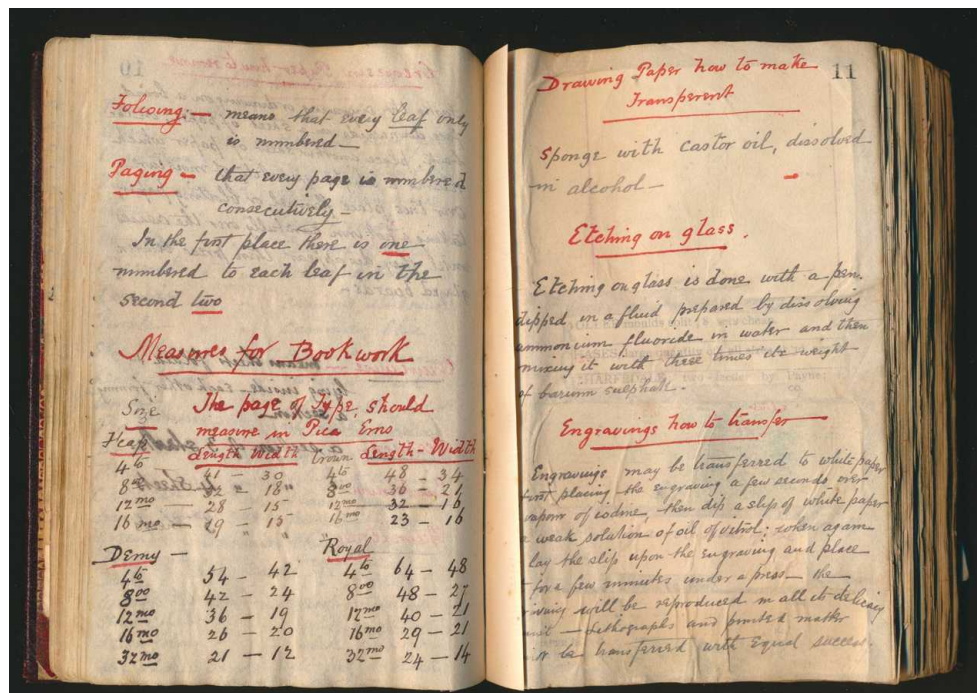 Folioing:— means that every leaf only
is numbered —
Paging — that every page is numbered
consecutively —
In the first place there is one
numbered to each leaf in the
second two
Measures for Bookwork
Size The page of Type, should
measure in Pica Ems
Fcap Length Width Crown Length - Width
4to 41 - 30 4to 48 - 34
8vo 18" 8vo 36 - 21
12mo — 28 - 15 12mo 32 - 16
16mo — 19 - 15 16mo 23 - 16
Demy — Royal
4to 54 - 42 4to 64 - 48
8vo 42 - 24 8vo 48 - 27
12mo 36 - 19 12mo 40 - 21
16mo 26 - 20 16mo 29 - 21
32mo 21 - 12 32mo 24 - 14
11
Drawing Paper how to make
Transperent
Sponge with castor oil, dissolved
in alcohol —
Etching on glass.
Etching on glass is done with a pen.
dipped in a fluid prepared by dissolving
ammonium fluoride in water and then
mixing it with three times its weight
of barium sulphate.
Engravings how to transfer
Engravings may be transferred to white paper
first placing the engraving a few seconds over
vapour of iodine, then dip a slip of white paper
weak solution of oil of vitrol; when again
lay the slip upon the engraving and place
for a few minutes under a press — the
will be reproduced in all its delicacy
— Lithographs and printed matter
be transferred with equal success.